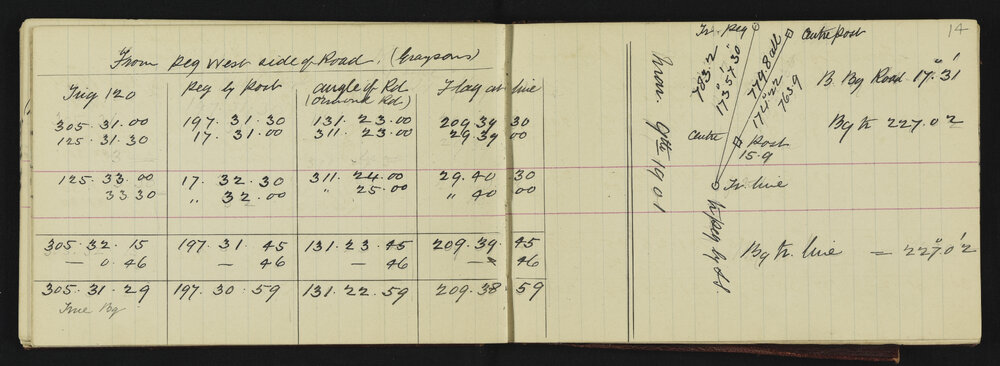 From peg West side of Road. (Graysons)
Trig 120 Peg by Post angle of Rd Flag at line
(Ormond Rd)
305.31.00 197.31.30 131.23.00 209.39 30
125.31.30 17.31.00 311.23.00 29.39 00
125.33.00 17.32.30 311.24.00 29.40 30
33.30 " 32.00 " 25.00 " 40 00
305.32.15 197.31.45 131.23.45 209.39 45
— 0.46 — 46 — 46 — 46
305.31.29 197.30.59 131.22.59 209.38 59
True Bg
14
Nov. 9th 1901
Tr. Peg
Centre post
783.2
173°57'30
779.8 all
174°22
763.9
Centre
Post
15.9
Tr. line
B. Bg Road 17°.31'
Bg Tr 227.0'2
Bg Tr. line = 227°.0'2